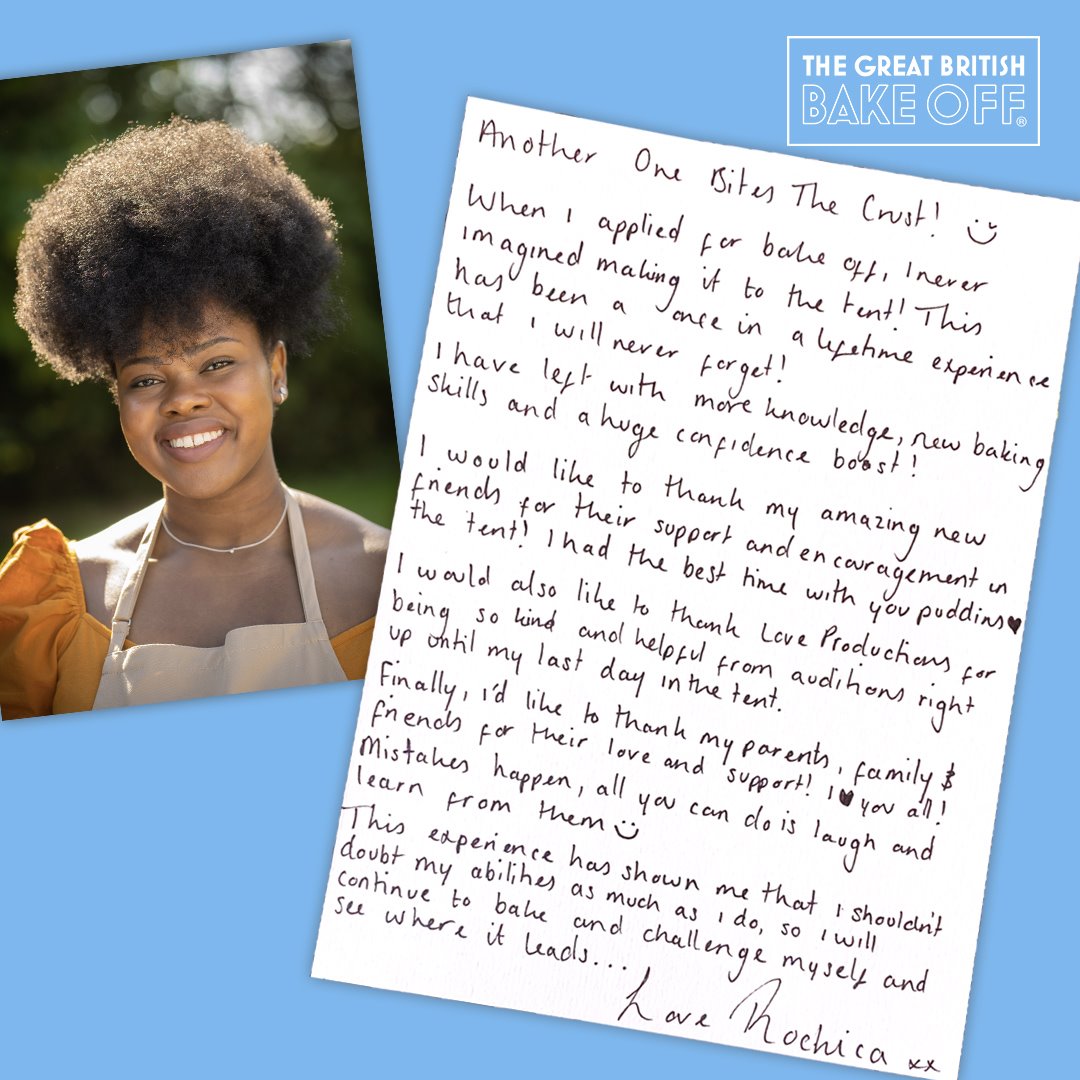 THE GREAT BRITISH
BAKE OFF®
Another One Bites The Crust! :)
When I applied for bake off, I never
imagined making it to the tent! This
has been a once in a lifetime experience
that I will never forget!
I have left with more knowledge, new baking
skills and a huge confidence boost!
I would like to thank my amazing new
friends for their support and encouragement in
the tent! I had the best time with you puddins♥
I would also like to thank Love Productions for
being so kind and helpful from auditions right
up until my last day in the tent.
Finally, I'd like to thank my parents, family &
friends for their love and support! I ♥ you all!
Mistakes happen, all you can do is laugh and
learn from them :)
This experience has shown me that I shouldn't
doubt my abilities as much as I do, so I will
continue to bake and challenge myself and
see where it leads...
Love Rochica xx